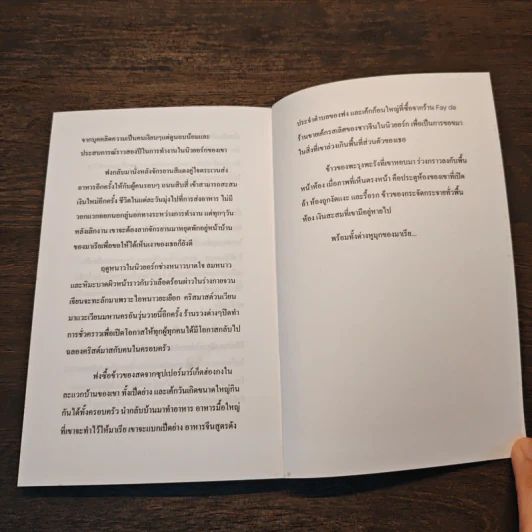 จากบุคคลิตความเป็นคนเงียบๆแต่ดูนอบน้อมและ
ประสบการณ์ราวสองปีในการทำงานในนิวยอร์กของเขา
ฟงกลับมานั่งหลังจักรยานสีแดงคู่ใจตระเวนส่ง
อาหารอีกครั้งให้กับผู้คนรอบๆ แมนฮัตตัน เข้าสามารถสะสม
เงินใหม่อีกครั้ง ชีวิตในแต่ละวันมุ่งไปที่การส่งอาหาร ไม่มี
วอกแวกออกนอกลู่นอกทางระหว่างการทำงาน แต่ทุกๆวัน
หลังเลิกงาน เขาจะต้องลากจักรยานมาหยุดพักอยู่หน้าบ้าน
ของมาเรียเพื่อขอให้ได้เห็นเงาของเธอก็ยังดี
ฤดูหนาวในนิวยอร์กช่างหนาวบาดใจ ลมหนาว
และหิมะบาดผิวหน้าราวกับว่าเลือดร้อนผ่าวในร่างกายจวน
เจียนจะทะลักมาเพราะไอหนาวยะเยือก คริสมาสต์วนเวียน
มาแวะเวียนมหานครอันวุ่นวายนี้อีกครั้ง ร้านรวงต่างๆปิดทำ
การชั่วคราวเพื่อเปิดโอกาสให้ทุกผู้ทุกคนได้มีโอกาสกลับไป
ฉลองคริสต์มาสกับคนในครอบครัว
ฟงซื้อข้าวของสดจากซุปเปอร์มาร์เก็ตฮ่องกงใน
ละแวกบ้านของเขา ทั้งเป็ดย่าง และเค้กวันเกิดขนาดใหญ่กิน
กันได้ทั้งครอบครัว นำกลับบ้านมาทำอาหาร อาหารมื้อใหญ่
ที่เขาจะทำไว้ให้มาเรีย เขาจะแบกเป็ดย่าง อาหารจีนสูตรดัง
ประจำตำบลของฟง และเค้กก้อนใหญ่ที่ซื้อจากร้าน Fay da
ร้านขายเค้กรสเลิศของชาวจีนในนิวยอร์ก เพื่อเป็นการขอขมา
ในสิ่งที่เขาล่วงเกินพื้นที่ส่วนตัวของเธอ
ข้าวของพะรุงพะรังที่เขาหอบมา ร่วงกราวลงกับพื้น
หน้าห้อง เมื่อภาพที่เห็นตรงหน้า คือประตูห้องของเขาที่เปิด
อ้า ห้องถูกงัดแงะ และรื้อรก ข้าวของกระจัดกระจายทั่วพื้น
ห้อง เงินสะสมที่เขามีอยู่หายไป
พร้อมทั้งต่างหูมุกของมาเรีย...